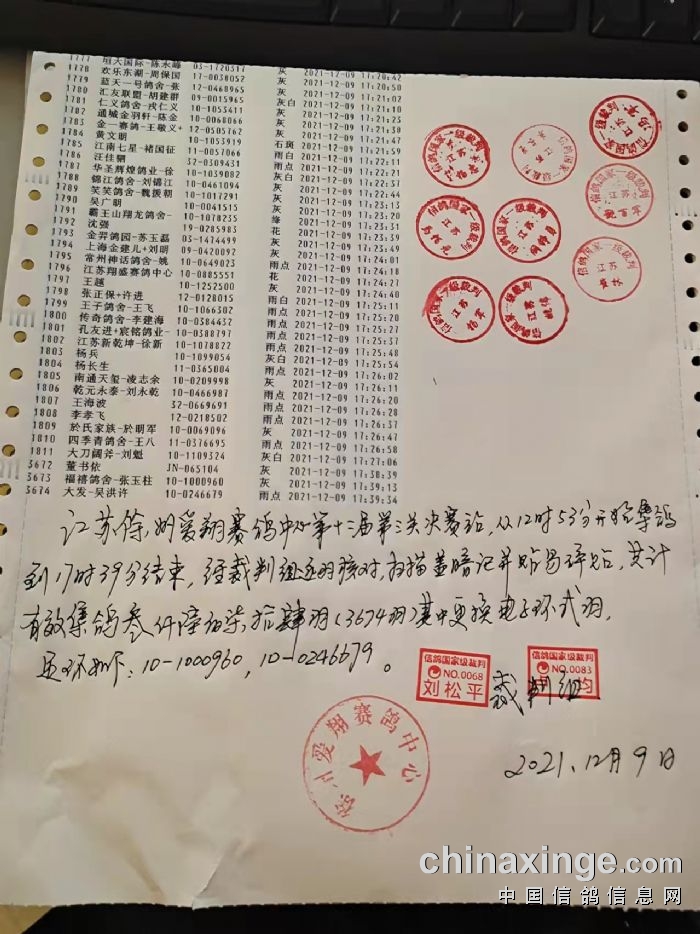 1777 恒大国际-陈永峰 03-1720317 灰 2021-12-09 17:20:42
1778 欢乐东湖-周保国 17-0038052 灰 2021-12-09 17:20:50
1779 蓝天一号鸽舍-张 12-0468965 灰 2021-12-09
1780 汇友联盟-胡建群 09-0015965 灰白 2021-12-09 17:21:10
1781 仁义鸽舍-戎仁义 10-1053411 灰 2021-12-09
1782 通城金羽轩-陈金 10-0068066 灰 2021-12-09
1783 金一赛鸽-王敬义+ 12-0505762 灰 2021-12-09
1784 黄文明 10-1053919 石斑 2021-12-09 17:21:59
1785 江南七星-褚国征 11-0057066 雨白 2021-12-09 17:22:11
1786 汪佳驷 32-0309431 雨点 2021-12-09
1787 华圣辉煌鸽业-徐 10-1039082 灰 2021-12-09
1788 锦江鸽舍-刘锦江 10-0461094 灰 2021-12-09 17:22:44
1789 笑笑鸽舍-魏援朝 10-1017291 雨白 2021-12-09 17:23:12
1790 吴广朋 10-0041515 灰 2021-12-09 17:23:20
1791 霸王山翔龙鸽舍- 10-1078235 绛 2021-12-09 17:23:31
1792 沈强 19-0285983 花 2021-12-09 17:23:39
1793 金羿鸽园-苏玉磊 03-1474499 灰 2021-12-09 17:23:49
1794 上海金健儿+刘明 09-0420092 灰 2021-12-09 17:24:01
1795 常州神话鸽舍-姚 10-0649023 雨点 2021-12-09 17:24:18
1796 江苏翔盛赛鸽中心 10-0885551 花 2021-12-09 17:24:27
1797 王越 10-1252500 灰 2021-12-09 17:24:40
1798 张正保+许进 12-0128015 雨白 2021-12-09 17:25:11
1799 王子鸽舍-王飞 10-1066302 雨点 2021-12-09 17:25:20
1800 传奇鸽舍-李建海 10-0384432 雨点 2021-12-09 17:25:27
1801 孔友进+宸铭鸽业- 10-0388797 雨点 2021-12-09 17:25:37
1802 江苏新乾坤-徐新 10-1078822 雨点 2021-12-09 17:25:48
1803 杨兵 10-1099054 灰 2021-12-09 17:25:54
1804 杨长生 11-0365004 灰 2021-12-09 17:26:02
1805 南通天玺-凌志余 10-0209998 灰 2021-12-09 17:26:11
1806 乾元永泰-刘永乾 10-0466987 雨点 2021-12-09 17:26:20
1807 王海波 32-0669691 雨点 2021-12-09 17:26:28
1808 李孝飞 12-0218502 雨点 2021-12-09 17:26:38
1809 於氏家族-於明军 10-0069096 灰 2021-12-09 17:26:47
1810 四季青鸽舍-王八 11-0376695 雨点 2021-12-09 17:26:58
1811 大刀阔斧-刘魁 10-1109324 灰白 2021-12-09 17:27:06
3672 董书依 JN-065104 灰 2021-12-09 17:30:13
3673 福禧鸽舍-张玉柱 10-1000960 灰 2021-12-09 17:38:39
3674 大发-吴洪许 10-0246679 雨点 2021-12-09 17:39:34
江苏徐州爱翔赛鸽中心第十二届第三关决赛站,从12时53分开始集鸽
到17时39分结束,经裁判组逐羽核对,扫描盖暗记并贴易碎贴,共计
有效集鸽叁仟陆佰柒拾肆羽(3674羽)其中更换电子环贰羽,
足环如下:10-1000960,10-0246679。
信鸽国家级裁判
NO.0068
刘松平
信鸽国家级裁判
NO.0083
裁判组
徐州爱翔赛鸽中心
2021、12月9日
信鸽国家一级裁判
江苏
chinaxinge.com
中国信鸽信息网